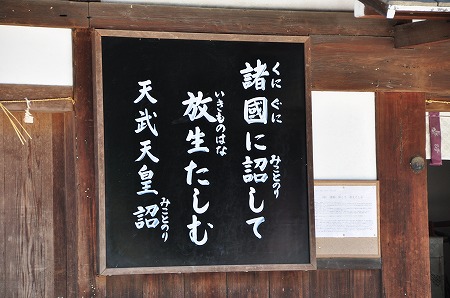 諸國に詔して
くにぐに
みことのり
放生たしむ
いきものはな
天武天皇詔
みことのり